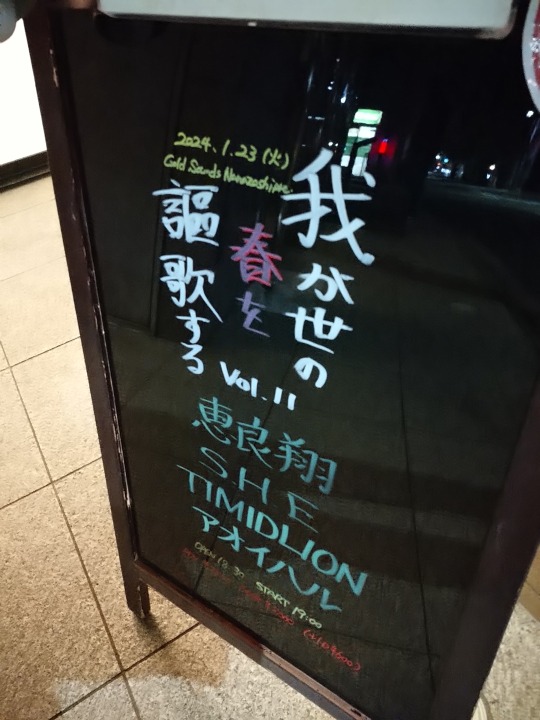 2024.1.23(火)
Gold Sounds
我が世の
春を
謳歌する
Vol.11
恵良翔
SHE
TIMIDLION
アオイハル
OPEN 18:30 START 19:00